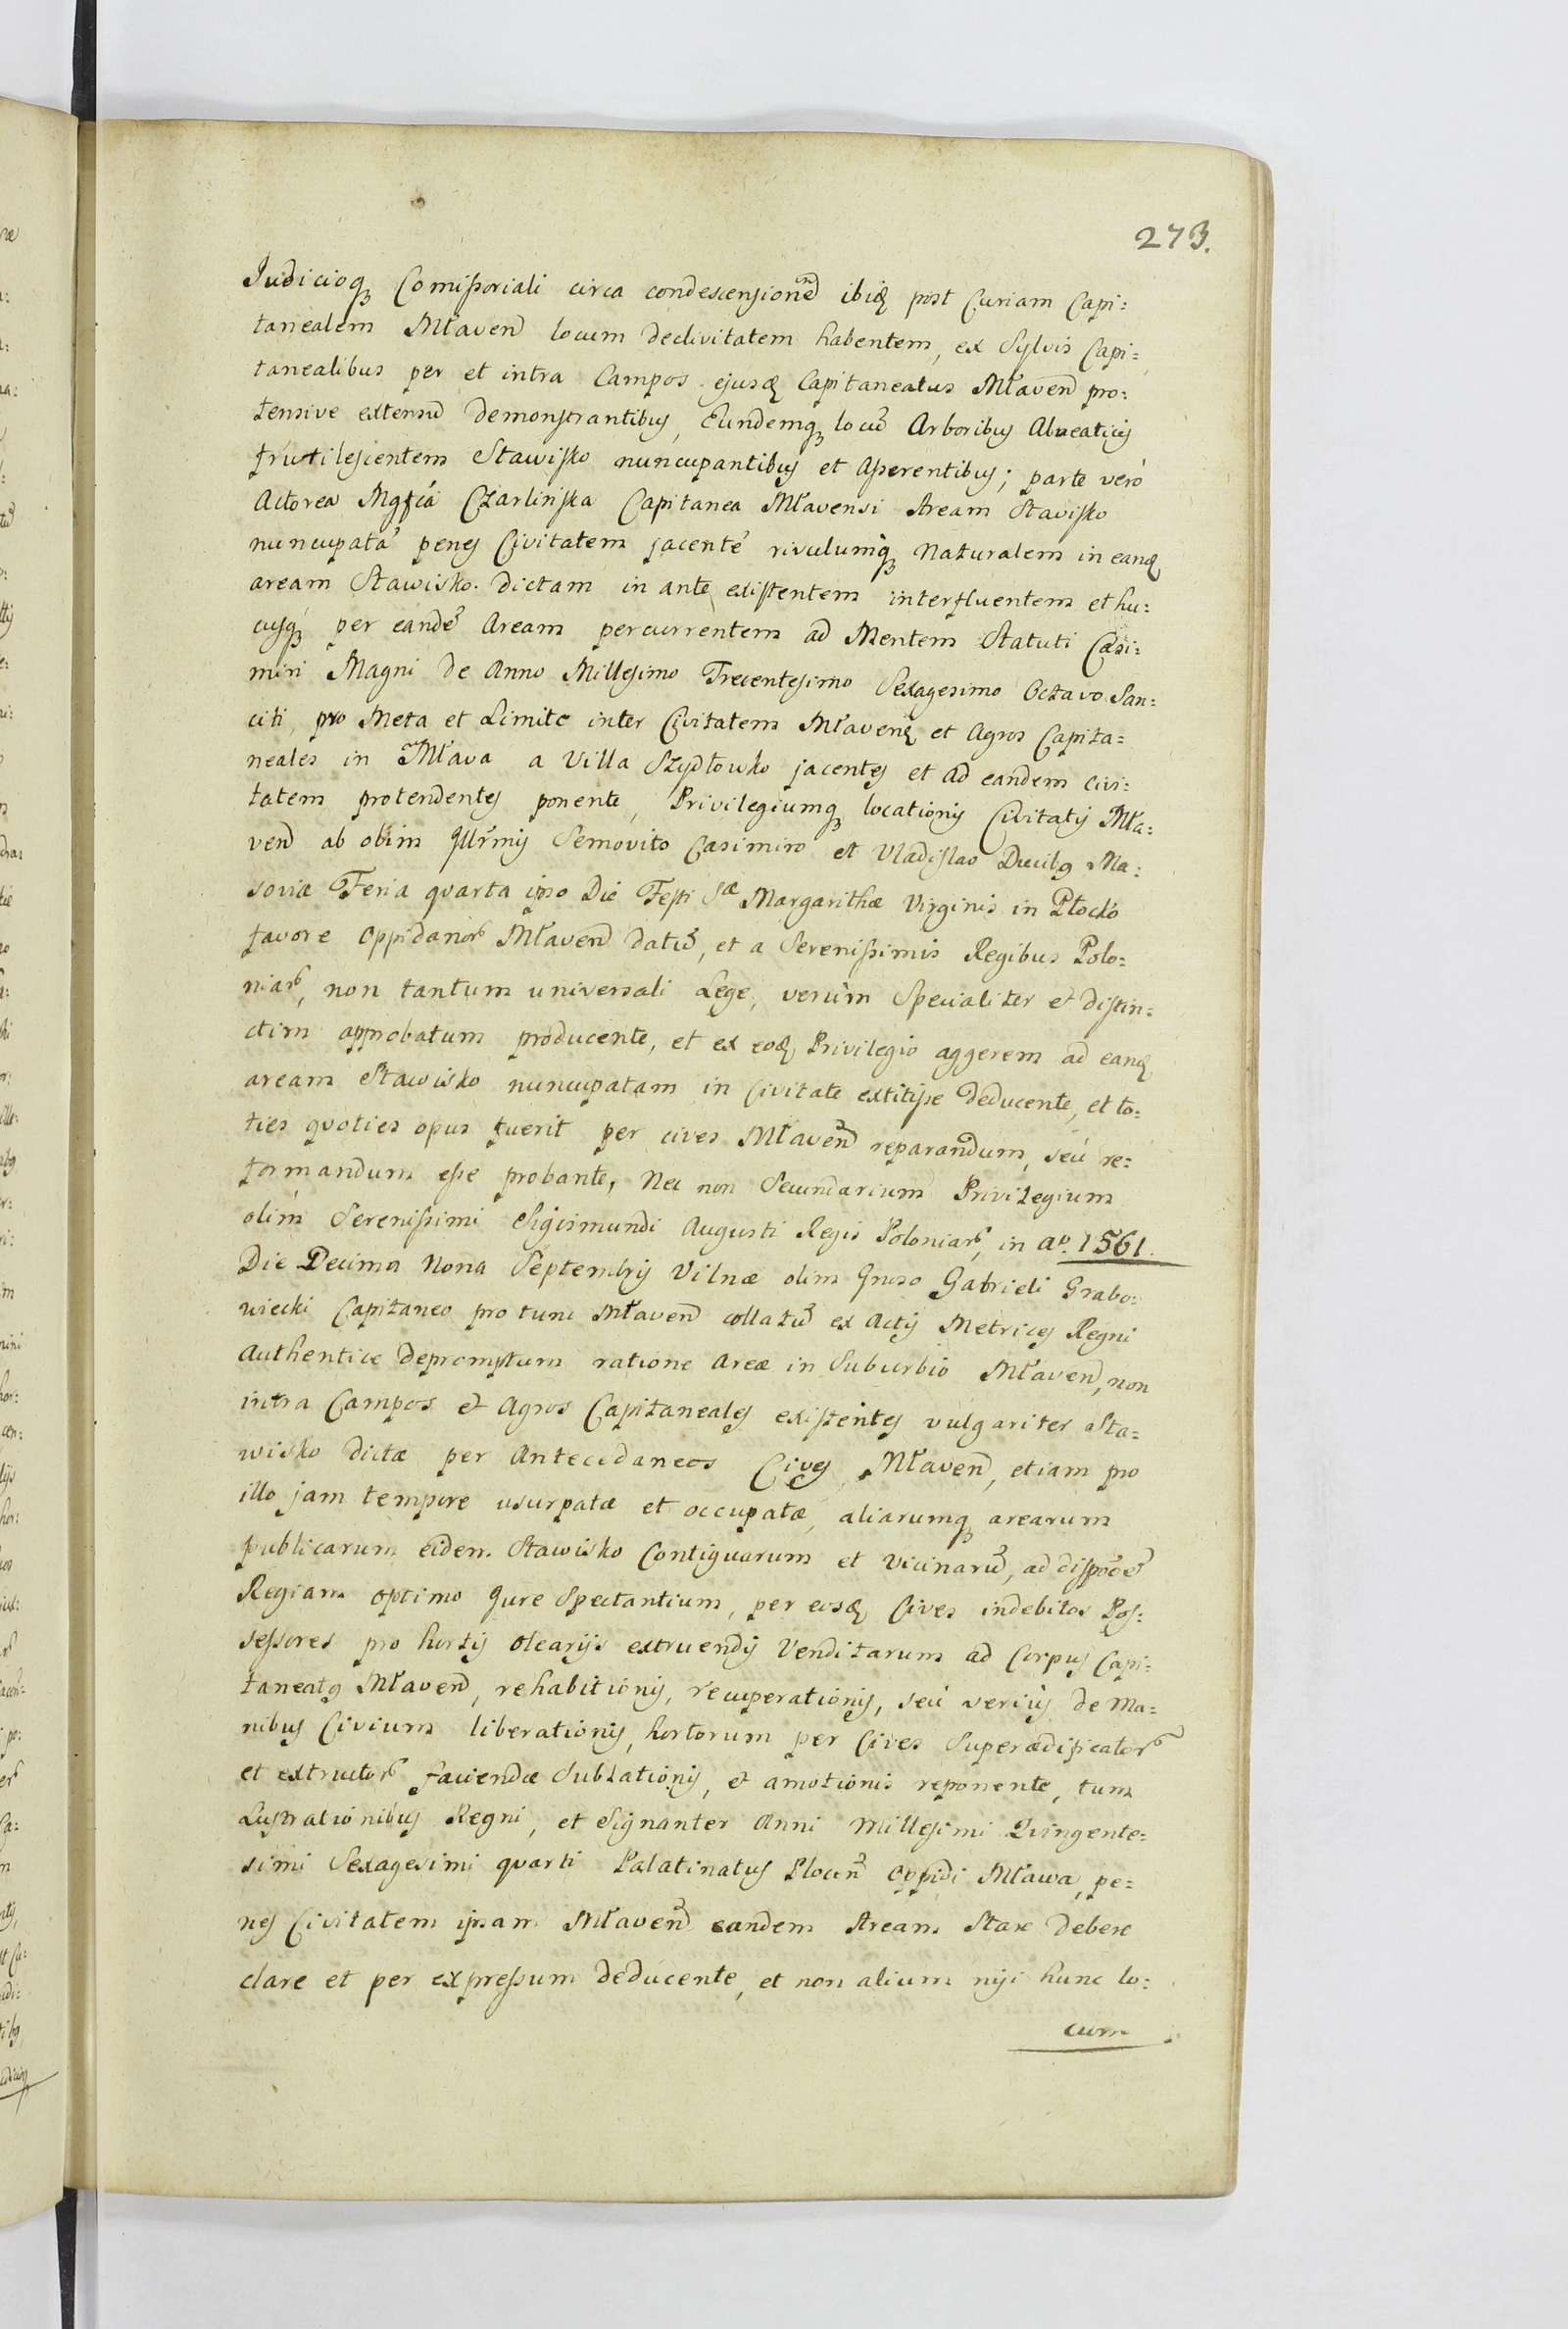 273.
Judicioq3 Comissoriali circa condescensionem ibiq3 post Curiam Capi:
tanealem Mławen locum declivitatem habentem, ex Sylvis Capi:
tanealibus per et intra Campos ejusq Capitaneatus Mławen pro:
tensive extensu demonstrantibus, Eundemq3 locu Arboribus Alneaticis
frutilescientem Stawisko nuncupantibus et asserentibus; parte verò
Actorea Mgfca Czarlińska Capitanea Mławensi Aream Stavisko
nuncupatã penes Civitatem jacentẽ rivulumq3 Naturalem in eandq
aream Stawisko dictam in ante existentem interfluentem et hu:
cusq3 per eandẽ Aream percurrentem ad Mentem Statuti Casi:
miri Magni de Anno Millesimo Trecentesimo Sexagesimo Octavo San:
citi, pro Meta et Limite inter Civitatem Mławen et Agros Capita=
neales in Mława a Villa Szydłowko jacentes et ad eandem civi:
tatem protendentes ponente, Privilegiumq3 locationis Civitatis Mła:
ven ab olim Illrmis Semovito Casimiro et Vladislao Ducibq Ma:
soviæ Feria quarta ipso Die Festi Sæ Margarithæ Virginis in Płocko
favore Oppidanor Mławen datũ, et a Serenissimis Regibus Polo=
niar, non tantum universali Lege, verùm Specialiter et distin=
ctim approbatum producente, et ex eoq Privilegio aggerem ad eanq
aream Stawisko nuncupatam in Civitate extitisse deducente, et to:
ties qvoties opus fuerit per cives Mławen reparandum, seù re:
formandum esse probante, Nec non Secundarium Privilegium
olim Serenissimi Sigismundi Augusti Regis Poloniar, in ao. 1561.
Die Decima Nona Septembris Vilnæ olim Gnoso Gabrieli Grabo:
wiecki Capitaneo pro tunc Mławen collatũ ex Actis Metrices Regni
Authentice depromptum ratione Areæ in Suburbio Mławen, non
intra Campos et Agros Capitaneales existentes vulgariter Sta=
wisko dictæ per Antecedaneos Cives Mławen, etiam pro
illo jam tempore usurpatæ et occupatæ, aliarumq3 arearum
publicarum eidem Stawisko Contiguarum et Vicinarũ, ad dispoẽ
Regiam optimo Jure Spectantium, per eosq Cives indebitos Pos:
sessores pro hortis oleariis extruendis Venditarum ad Corpus Capi:
taneatq Mławen, rehabitionis, recuperationis, seù veriùs de Ma=
nibus Civium liberationis, hortorum per Cives Superædificator
et extructor faciendæ Sublationis, et amotionis reponente, tum
Lustrationibus Regni, et Signanter Anni Millesimi Qvingente=
simi Sexagesimi qvarti Palatinatus Plocen Oppidi Mława, pe=
nes Civitatem ipsam Mławen eandem Aream Stare debere
clare et per expressum deducente, et non alium nisi hunc lo=
cum